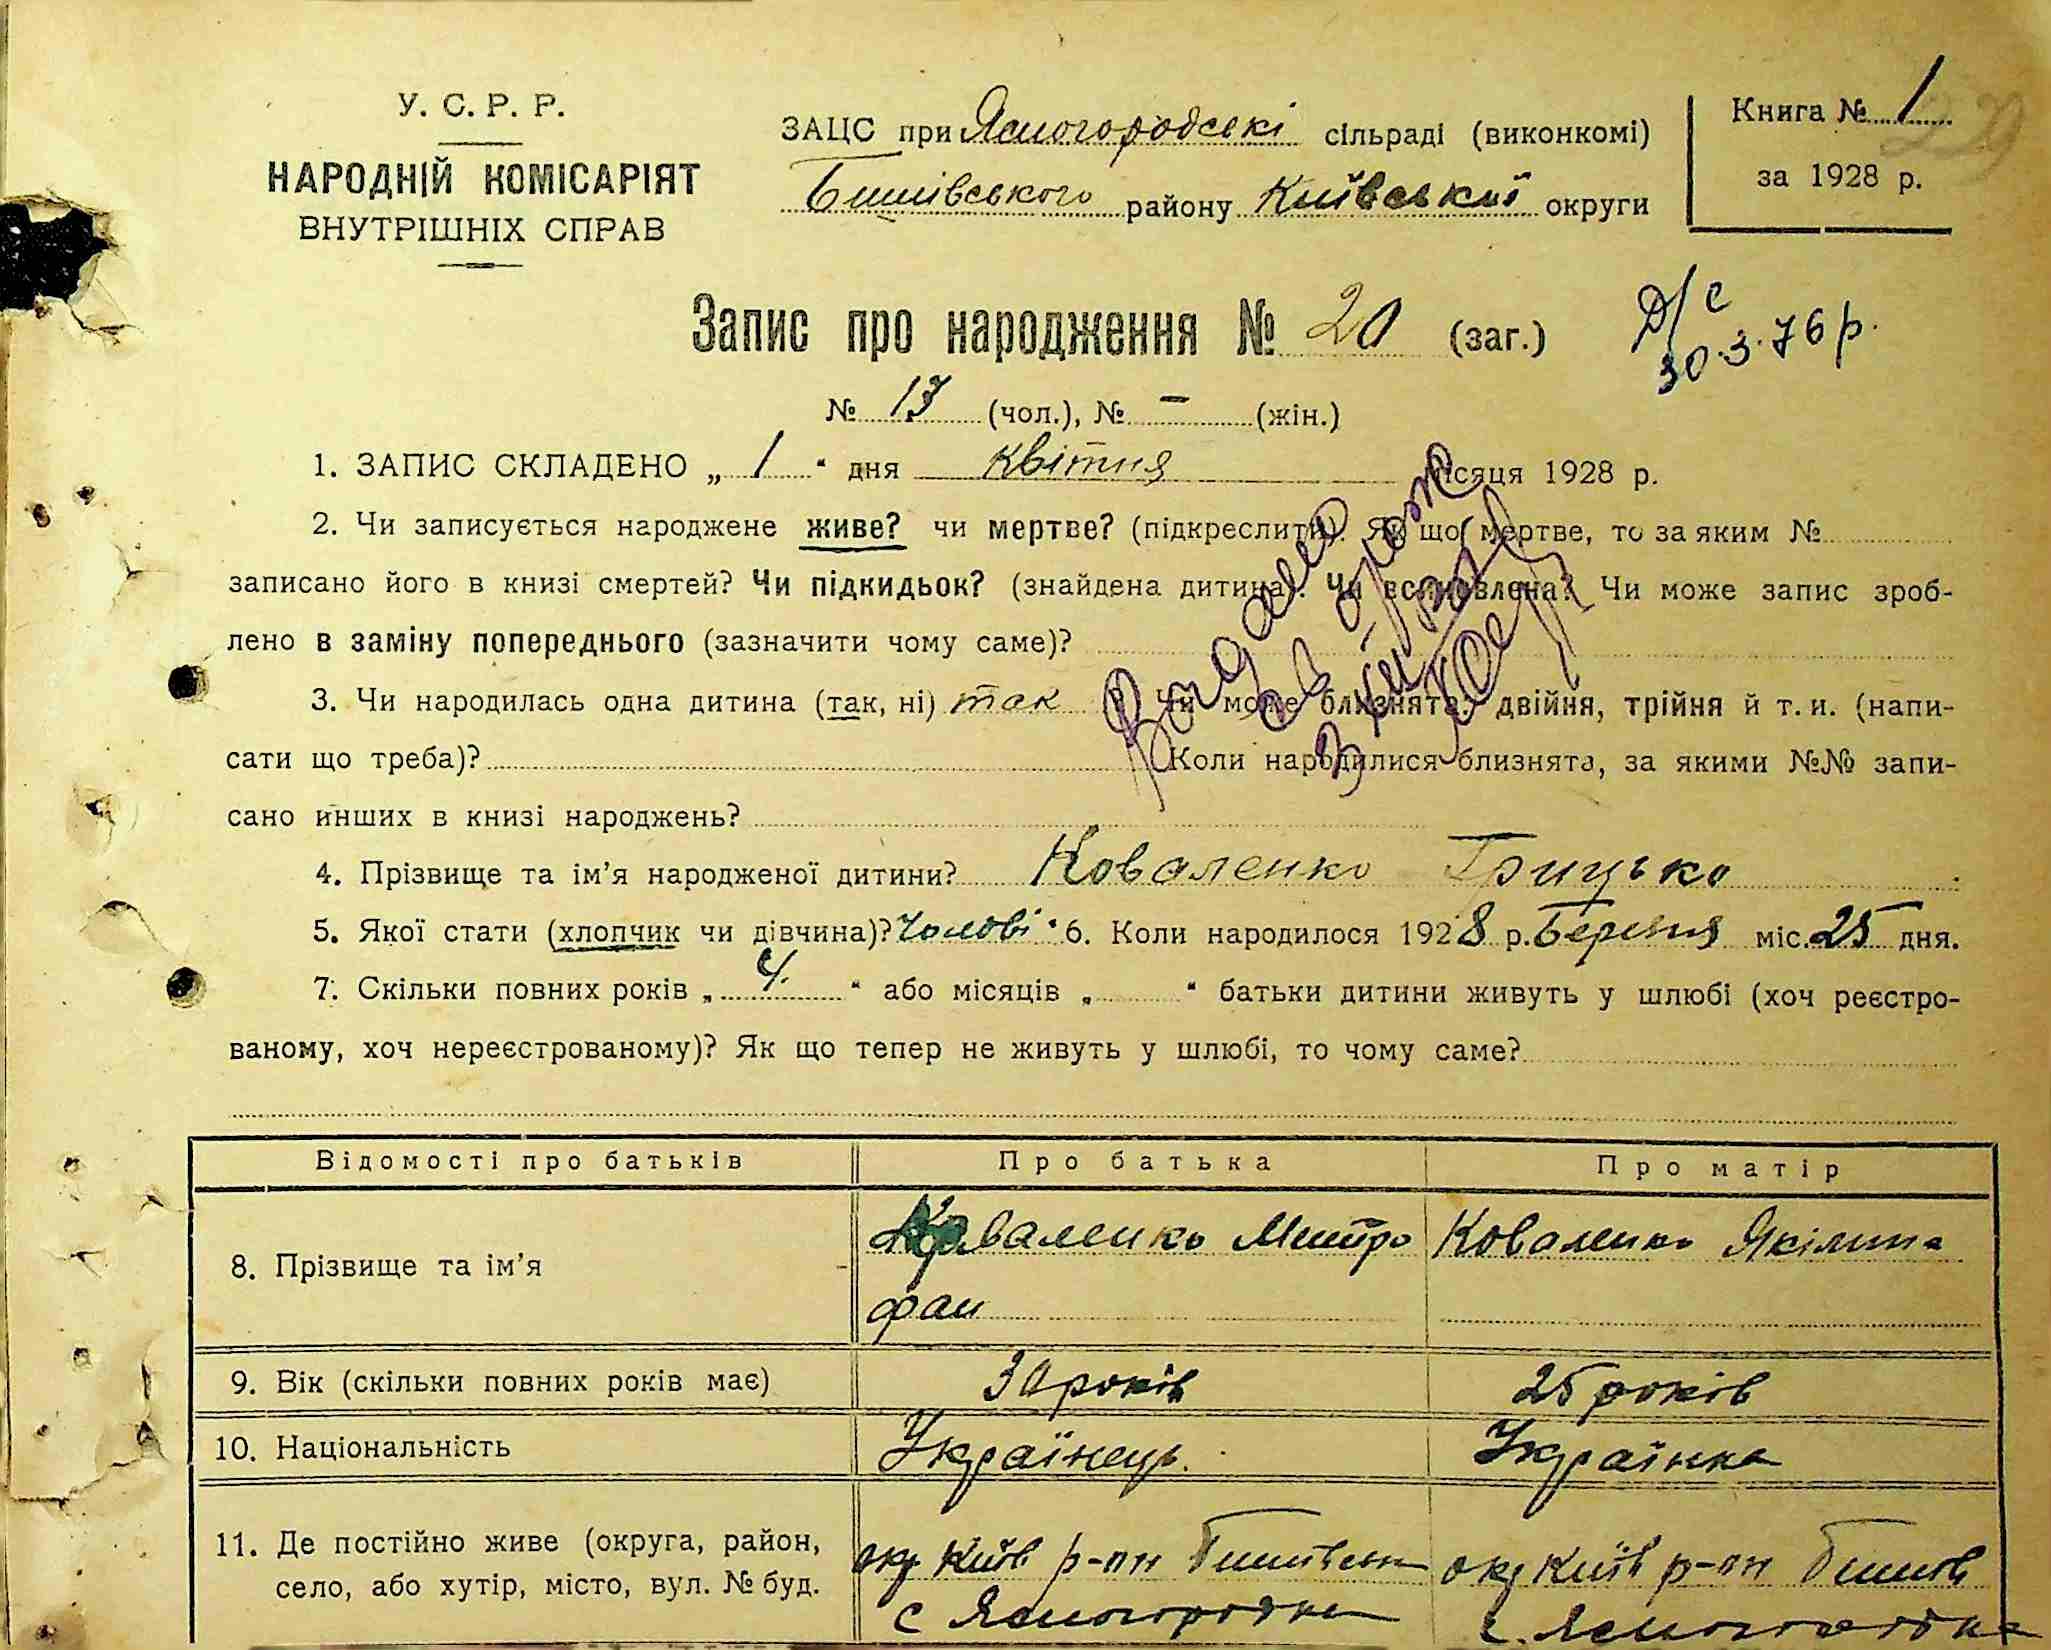 У. С. Р. Р.
НАРОДНІЙ КОМІСАРІЯТ
ВНУТРІШНІХ СПРАВ
ЗАЦС при Ясногородські сільраді (виконкомі)
Бишівського району Київської округи
Книга № 1
за 1928 р.
Запис про народження № 20 (заг.)
Д/с
30.3.76 р.
№ 17 (чол.), № – (жін.)
1. ЗАПИС СКЛАДЕНО „ 1 “ дня квітня місяця 1928 р.
2. Чи записується народжене живе? чи мертве? (підкреслити). Як що мертве, то за яким №
записано його в книзі смертей? Чи підкидьок? (знайдена дитина). Чи всиновлена? Чи може запис зроб-
лено в заміну попереднього (зазначити чому саме)?
3. Чи народилась одна дитина (так, ні) так ? Чи може близнята: двійня, трійня й т. и. (напи-
сати що треба)? Коли народилися близнята, за якими №№ запи-
сано инших в книзі народжень?
4. Прізвище та ім’я народженої дитини? Коваленко Грицько
5. Якої стати (хлопчик чи дівчина)? Чолові. 6. Коли народилося 1928 р. Березня міс. 25 дня.
7. Скільки повних років „ 4 “ або місяців „ “ батьки дитини живуть у шлюбі (хоч реєстро-
ваному, хоч нереєстрованому)? Як що тепер не живуть у шлюбі, то чому саме?
Відомості про батьків Про батька Про матір
8. Прізвище та ім’я Коваленко Митро Коваленко Якілина
фан
9. Вік (скільки повних років має) 30 років 25 років
10. Національність Українець. Українка
11. Де постійно живе (округа, район, окр Київ р-он Бишівськ окр Київ р-он Бишів
село, або хутір, місто, вул. № буд. с Ясногородка с. Ясногородка